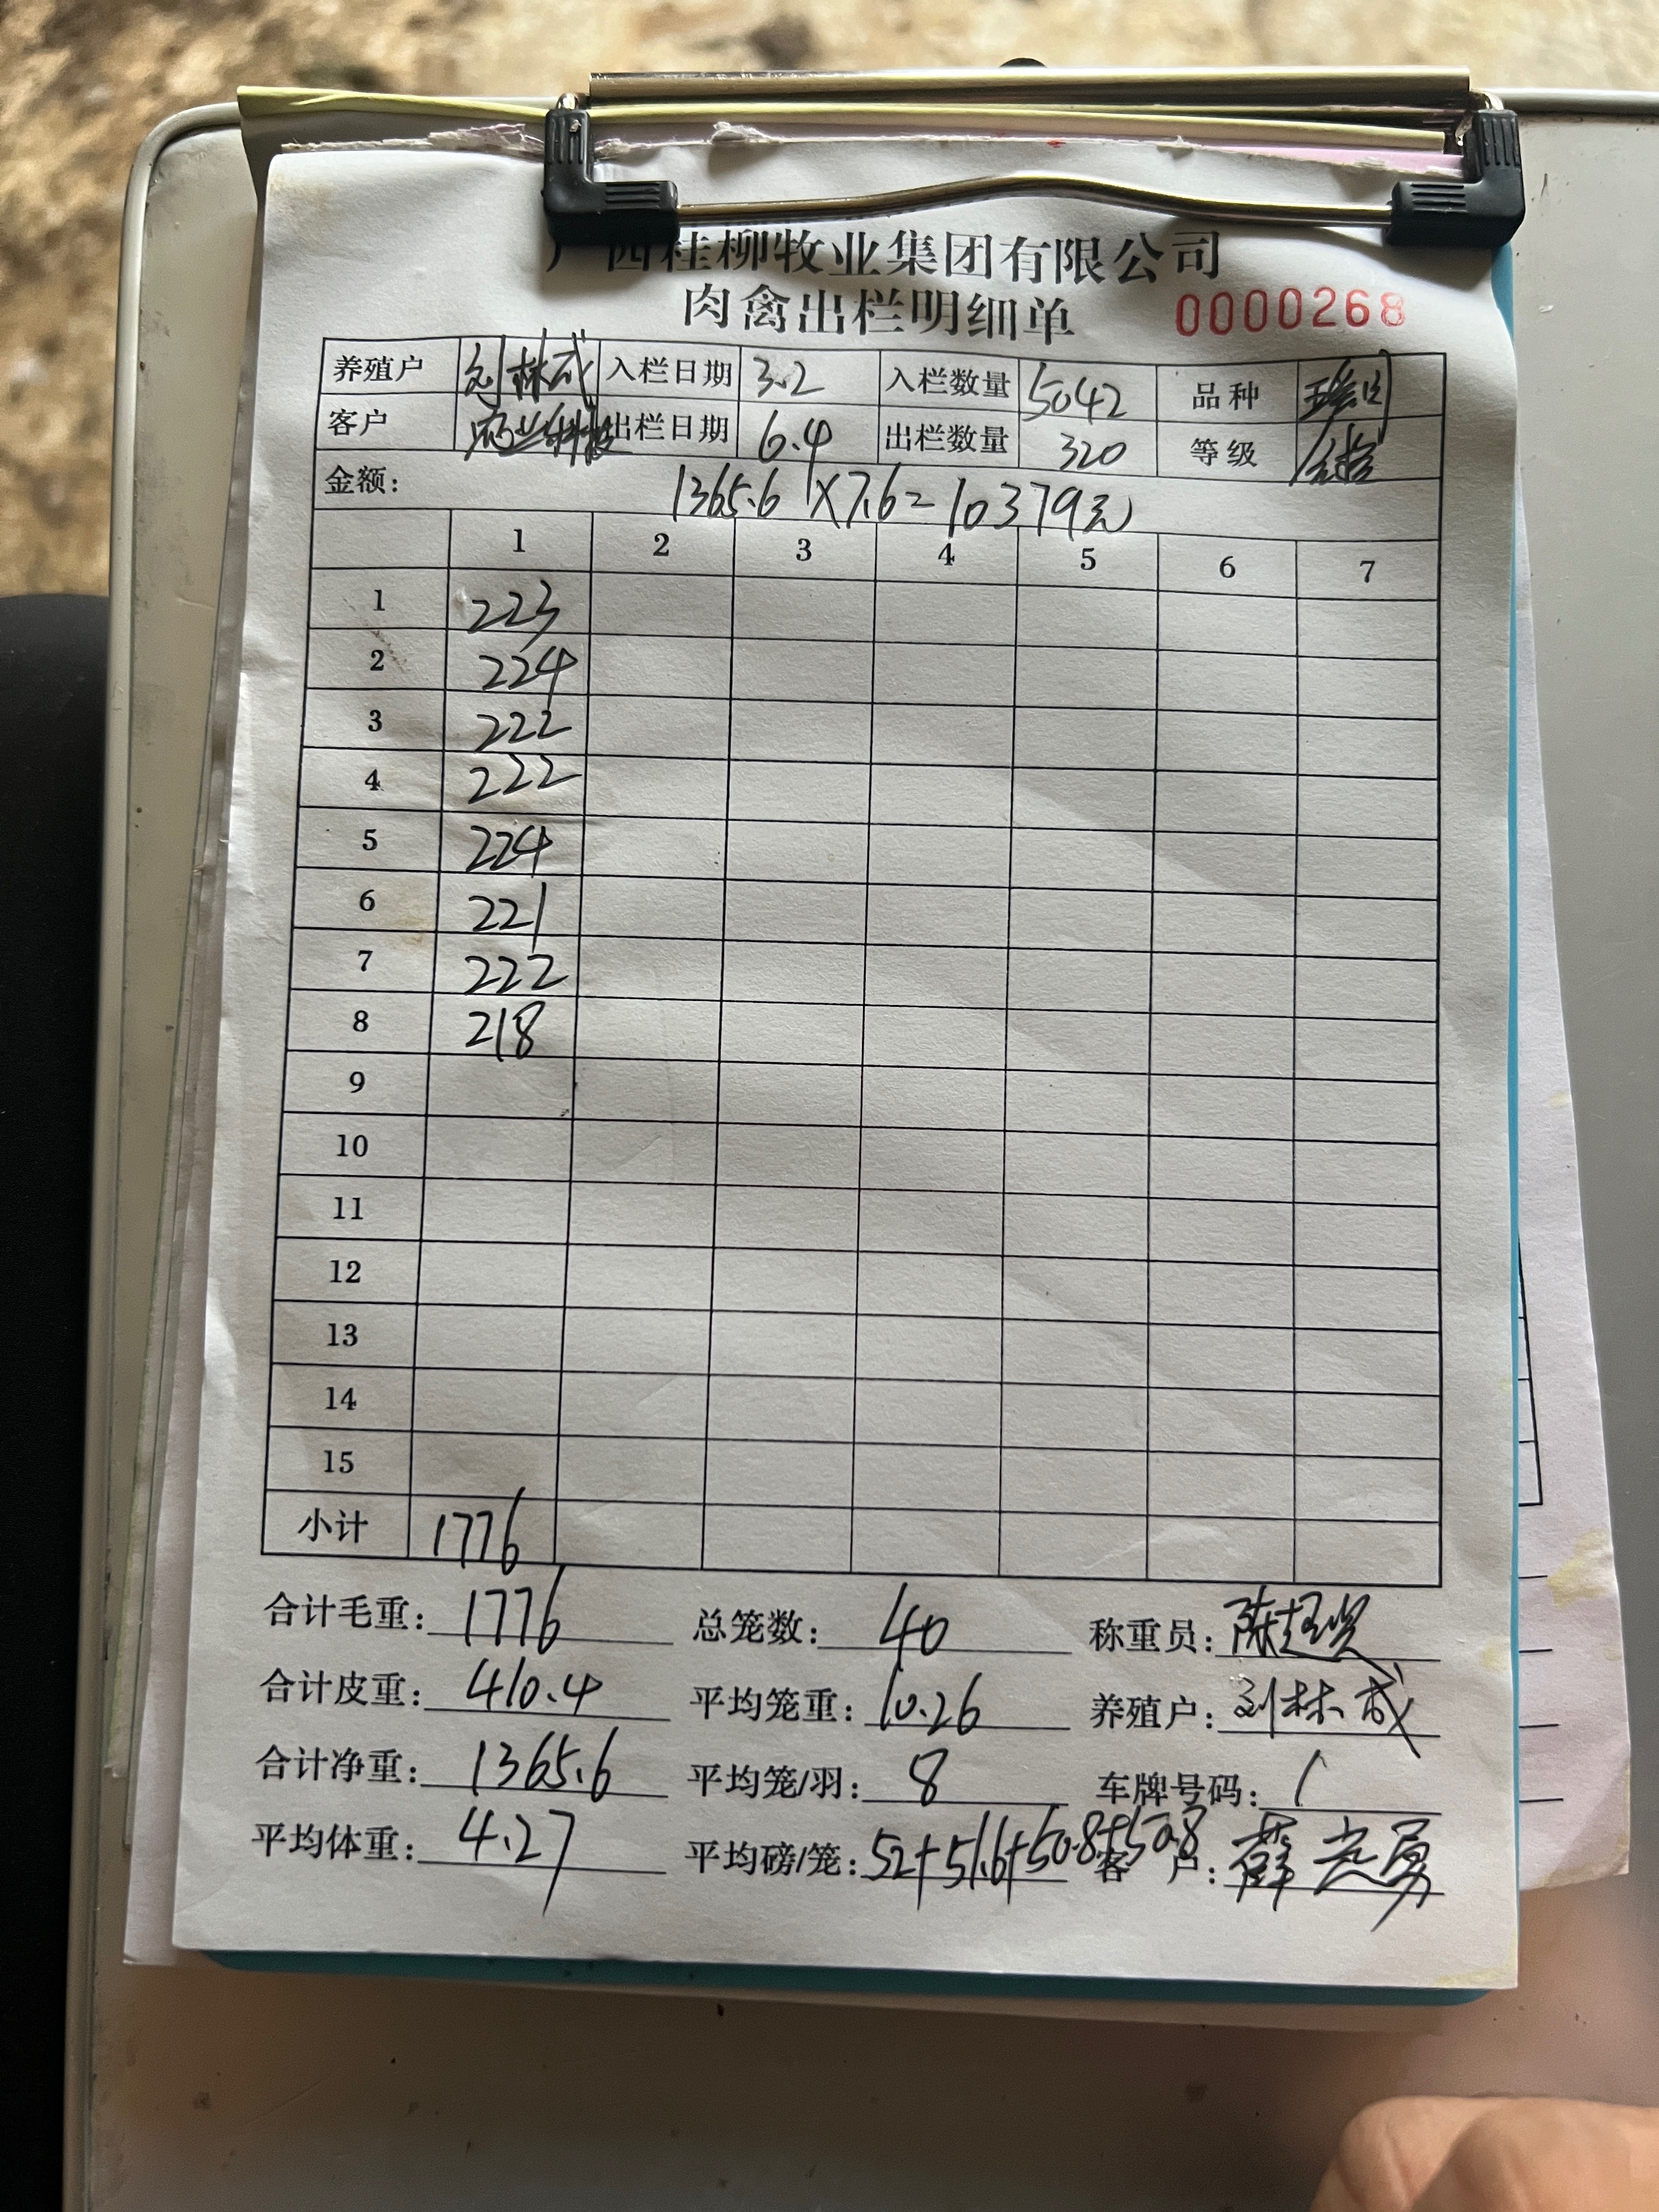 广西桂柳牧业集团有限公司
肉禽出栏明细单 0000268
养殖户 刘林成 入栏日期 3.2 入栏数量 5042 品种
客户 出栏日期 6.4 出栏数量 320 等级
金额: 1365.6×7.6=10379元
1 2 3 4 5 6 7
1 223
2 224
3 222
4 222
5 224
6 221
7 222
8 218
9
10
11
12
13
14
15
小计 1776
合计毛重: 1776 总笼数: 40 称重员:
合计皮重: 410.4 平均笼重: 10.26 养殖户: 刘林成
合计净重: 1365.6 平均笼/羽: 8 车牌号码: 1
平均体重: 4.27 平均磅/笼: 52+51.6+50.8+50.8 客户: